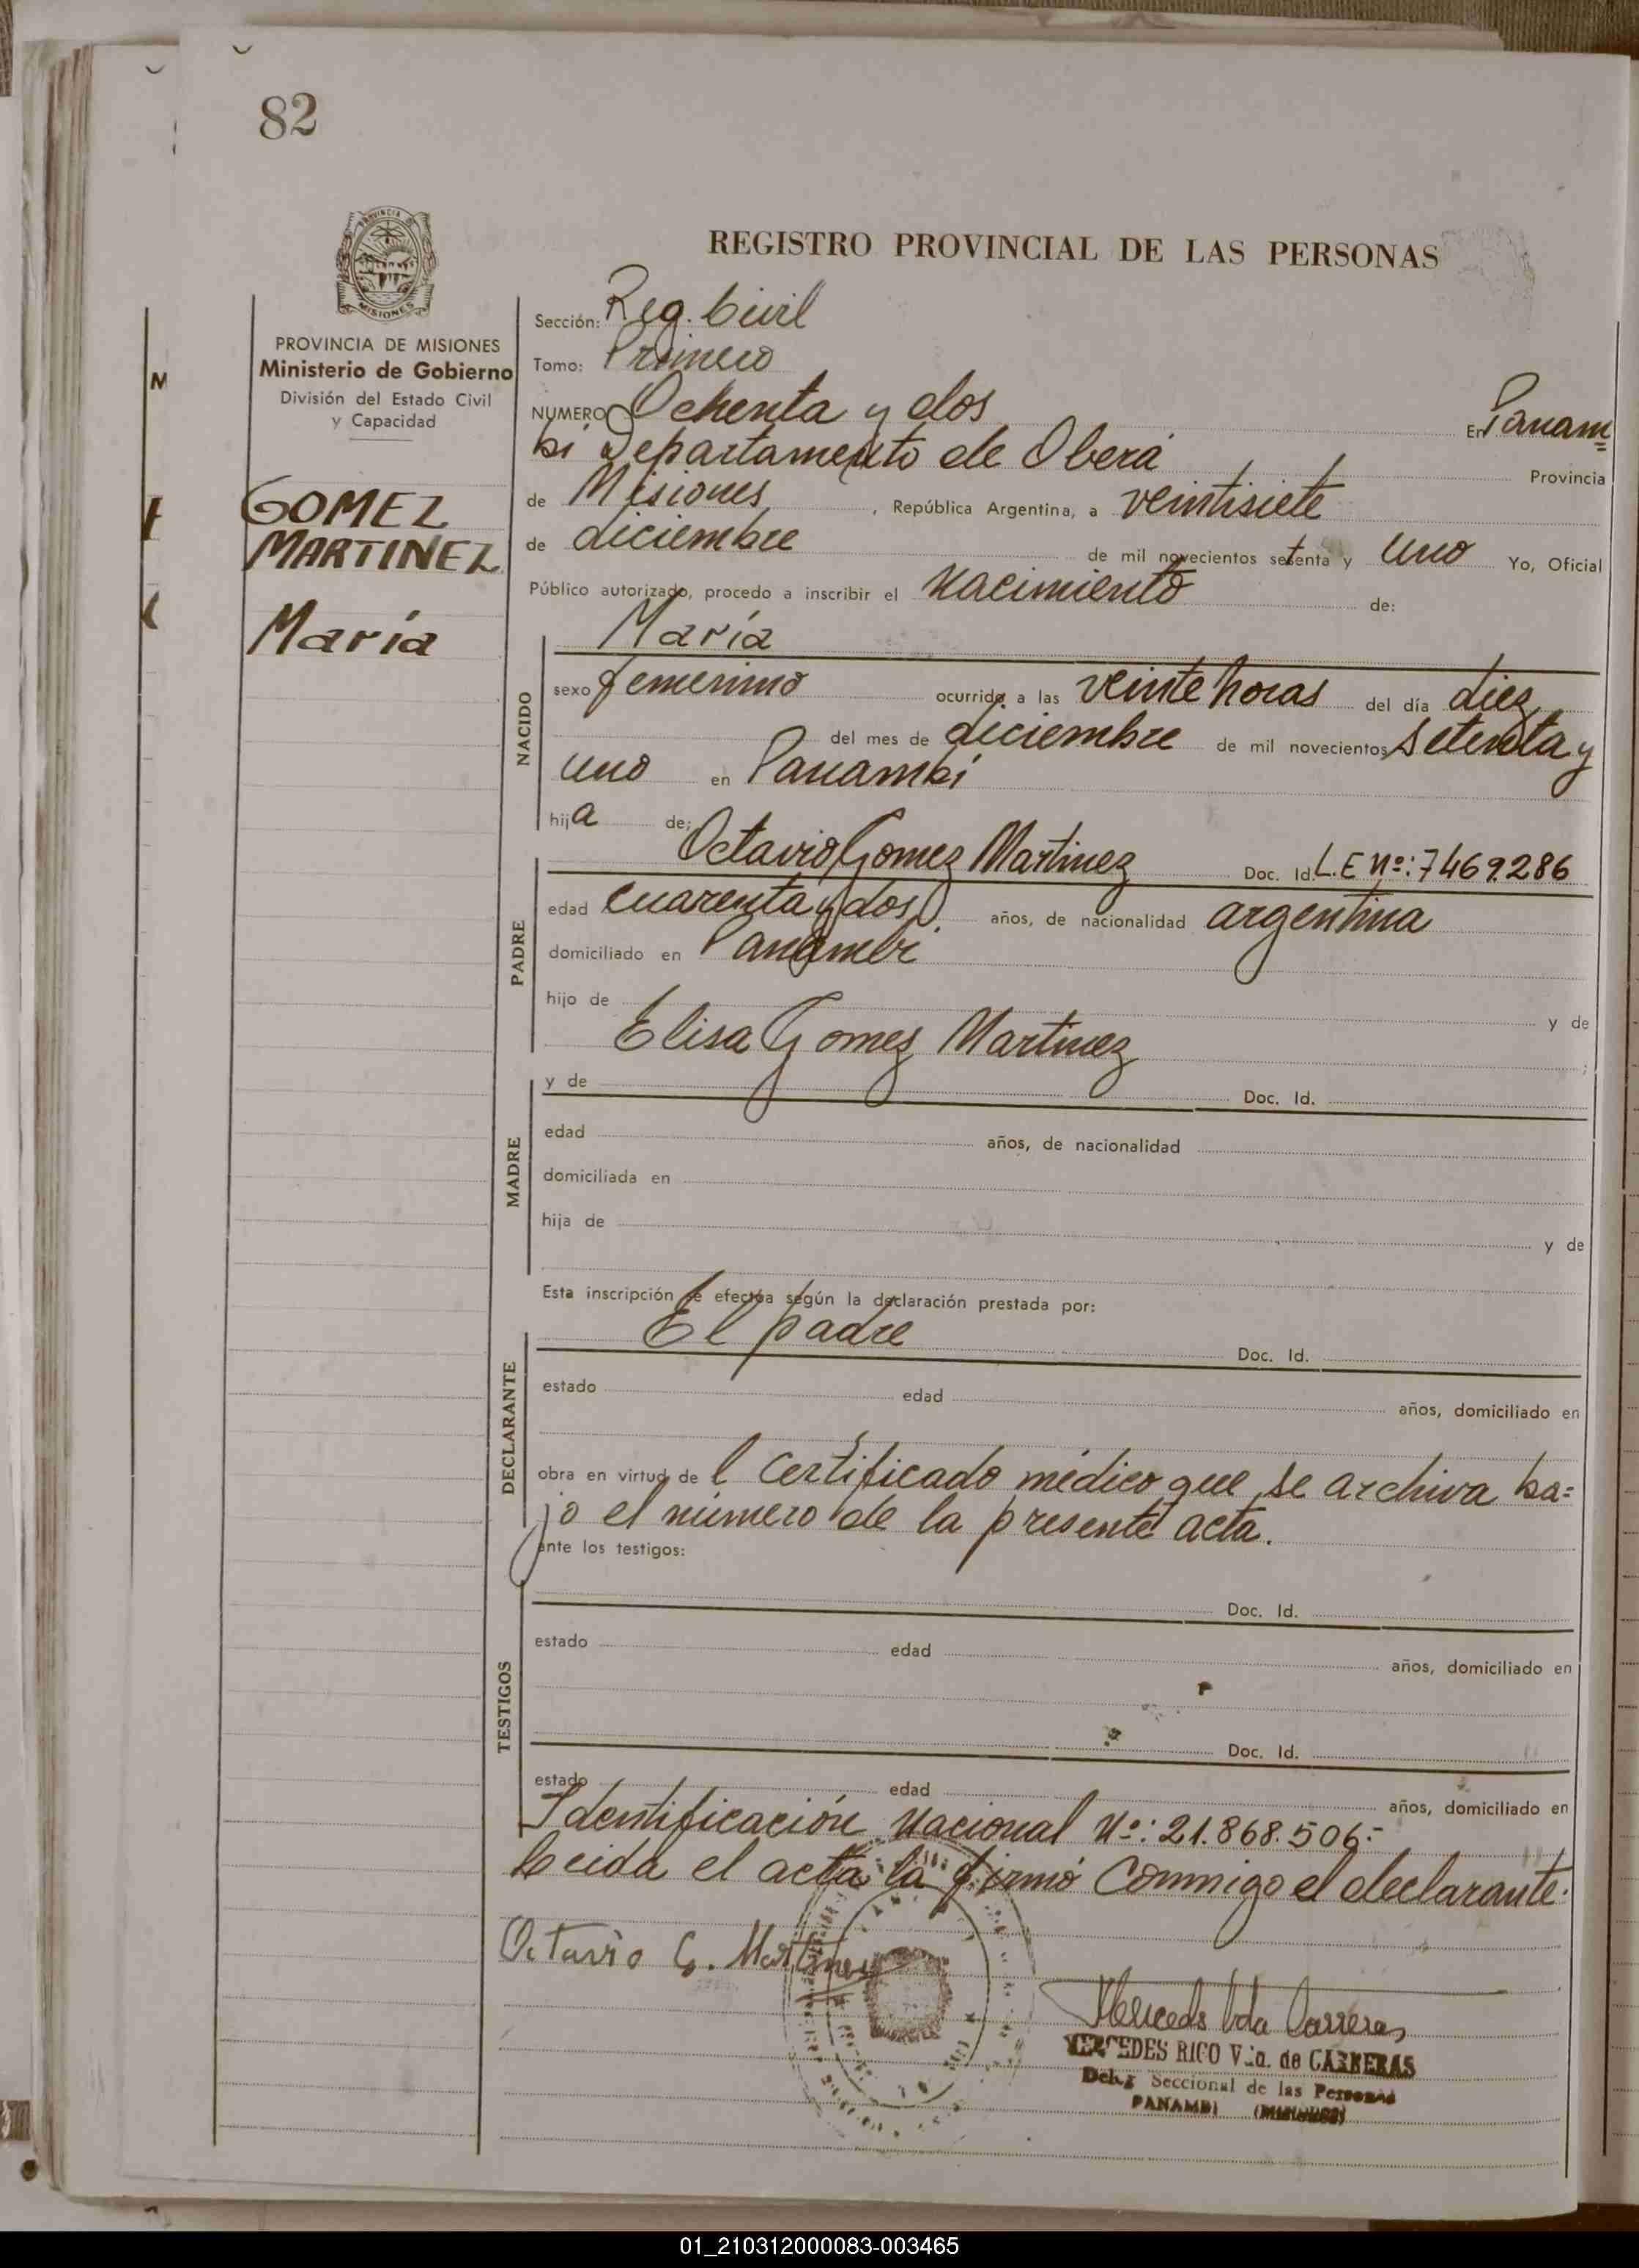 82
PROVINCIA DE MISIONES
Ministerio de Gobierno
División del Estado Civil
y Capacidad
GOMEZ
MARTINEZ
María
REGISTRO PROVINCIAL DE LAS PERSONAS
Sección: Reg. Civil
Tomo: Primero
NUMERO Ochenta y dos En Panam=
bi Departamento de Oberá Provincia
de Misiones, República Argentina, a veintisiete
de diciembre de mil novecientos setenta y uno Yo, Oficial
Público autorizado, procedo a inscribir el nacimiento de:
María
NACIDO
sexo femenino ocurrido a las veinte horas del día diez
del mes de diciembre de mil novecientos setenta y
uno en Panambí
hija de: Octavio Gomez Martinez Doc. Id. L.E Nº: 7469.286
PADRE
edad cuarenta y dos años, de nacionalidad argentina
domiciliado en Panambí
hijo de y de
Elisa Gomez Martinez ;
y de Doc. Id.
MADRE
edad años, de nacionalidad
domiciliada en
hija de y de
Esta inscripción se efectúa según la declaración prestada por:
El padre Doc. Id.
DECLARANTE
estado edad años, domiciliado en
obra en virtud de l certificado médico que se archiva ba=
jo el número de la presente acta.
ante los testigos:
Doc. Id.
TESTIGOS
estado edad años, domiciliado en
Doc. Id.
estado edad años, domiciliado en
Identificación Nacional Nº: 21.868.506.-
Leida el acta la firmó conmigo el declarante.
Octavio G. Martinez
Mercedes Vda Carreras
MERCEDES RICO Vda. de CARRERAS
Deleg Seccional de las Personas
PANAMBI (MISIONES)
01_210312000083-003465